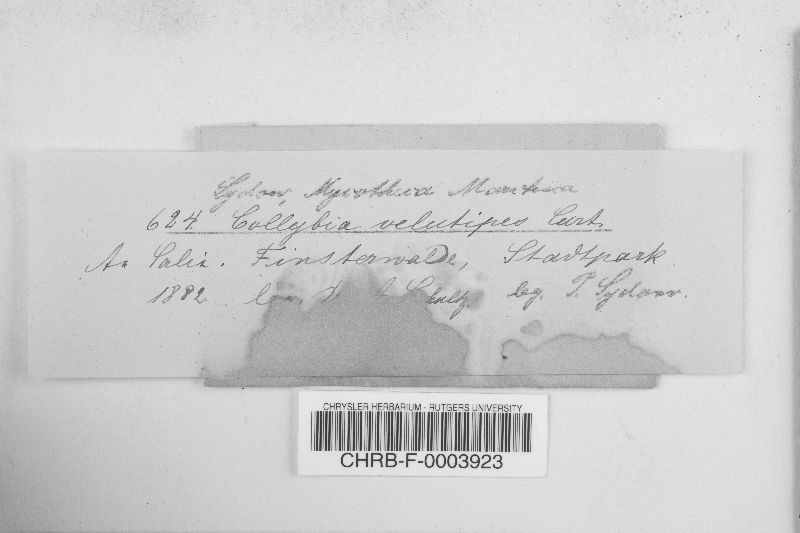 Sydow, Mycotheca Marchica
624. Collybia velutipes Curt.
An Salix. Finsterwalde, Stadtpark
1882 Schultz. P. Sydow.
CHRYSLER HERBARIUM - RUTGERS UNIVERSITY
CHRB-F-0003923